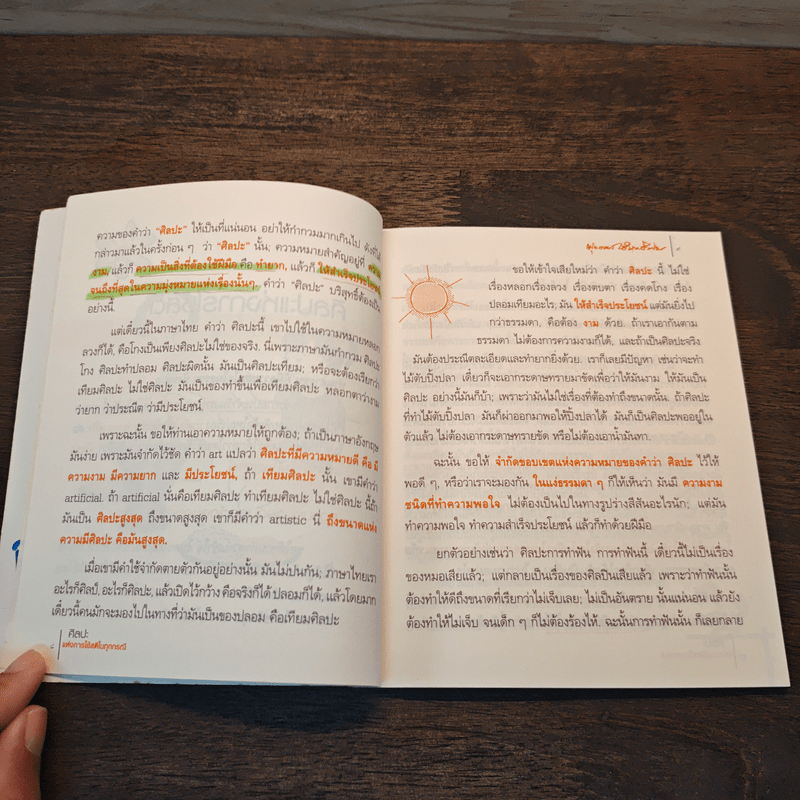 ความของคำว่า "ศิลปะ" ให้เป็นที่แน่นอน อย่าให้กำกวมมากเกินไป ดังที่ได้
กล่าวมาแล้วในครั้งก่อน ๆ ว่า "ศิลปะ" นั้น; ความหมายสำคัญอยู่ที่ ความ
งาม, แล้วก็ ความเป็นสิ่งที่ต้องใช้ฝีมือ คือ ทำยาก, แล้วก็ ให้สำเร็จประโยชน์
จนถึงที่สุดในความมุ่งหมายแห่งเรื่องนั้นๆ, คำว่า "ศิลปะ" บริสุทธิ์ต้องเป็น
อย่างนี้.
แต่เดี๋ยวนี้ในภาษาไทย คำว่า ศิลปะนี้ เอาไปใช้ในความหมายหลอก
ลวงก็ได้, คือโกงเป็นเพียงศิลปะไม่ใช่ของจริง. นี่เพราะภาษามันกำกวม ศิลปะ
โกง ศิลปะทำปลอม ศิลปะผิดนั้น มันเป็นศิลปะเทียม; หรือจะต้องเรียกว่า
เทียมศิลปะ ไม่ใช่ศิลปะ มันเป็นของทำขึ้นเพื่อเทียมศิลปะ หลอกตาว่างาม
ว่ายาก ว่าประณีต ว่ามีประโยชน์.
เพราะฉะนั้น ขอให้ท่านเอาความหมายให้ถูกต้อง; ถ้าเป็นภาษาอังกฤษ
มันง่าย เพราะมันจำกัดไว้ชัด คำว่า art แปลว่า ศิลปะที่มีความหมายดี คือ มี
ความงาม มีความยาก และ มีประโยชน์, ถ้า เทียมศิลปะ นั้น เขามีคำว่า
artificial. ถ้า artificial นั่นคือเทียมศิลปะ ทำเทียมศิลปะ ไม่ใช่ศิลปะ นี้ถ้า
มันเป็น ศิลปะสูงสุด ถึงขนาดสูงสุด เขาก็มีคำว่า artistic นี่ ถึงขนาดแห่ง
ความมีศิลปะ คือมันสูงสุด.
เมื่อเขามีคำใช้จำกัดตายตัวกันอยู่อย่างนั้น มันไม่ปนกัน; ภาษาไทยเรา
อะไรก็ศิลป์, อะไรก็ศิลปะ, แล้วเปิดไว้กว้าง คือจริงก็ได้ ปลอมก็ได้, แล้วโดยมาก
เดี๋ยวนี้คนมักจะมองไปในทางที่ว่ามันเป็นของปลอม คือเทียมศิลปะ
ศิลปะ
แห่งการใช้สติในทุกกรณี
ขอให้เข้าใจเสียใหม่ว่า คำว่า ศิลปะ นี้ ไม่ใช่
เรื่องหลอกเรื่องลวง เรื่องตบตา เรื่องคดโกง เรื่อง
ปลอมเทียมอะไร; มัน ให้สำเร็จประโยชน์ แต่มันยิ่งไป
กว่าธรรมดา, คือต้อง งาม ด้วย. ถ้าเราเอากันตาม
ธรรมดา ไม่ต้องการความงามก็ได้, และถ้าเป็นศิลปะจริง
มันต้องประณีตละเอียดและทำยากยิ่งด้วย. เราก็เลยมีปัญหา เช่นว่าจะทำ
ไม้ตับปิ้งปลา เดี๋ยวก็จะเอากระดาษทรายมาขัดเพื่อว่าให้มันงาม ให้มันเป็น
ศิลปะ อย่างนี้มันก็บ้า; เพราะว่ามันไม่ใช่เรื่องที่ต้องทำถึงขนาดนั้น; ถ้าศิลปะ
ที่ทำไม้ตับปิ้งปลา มันก็ผ่าออกมาพอให้ปิ้งปลาได้ มันก็เป็นศิลปะพออยู่ใน
ตัวแล้ว ไม่ต้องเอากระดาษทรายขัด หรือไม่ต้องเอาน้ำมันทา.
ฉะนั้น ขอให้ จำกัดขอบเขตแห่งความหมายของคำว่า ศิลปะ ไว้ให้
พอดี ๆ, หรือว่าเราจะมองกัน ในแง่ธรรมดา ๆ ก็ให้เห็นว่า มันมี ความงาม
ชนิดที่ทำความพอใจ ไม่ต้องเป็นไปในทางรูปร่างสีสันอะไรนัก; แต่มัน
ทำความพอใจ ทำความสำเร็จประโยชน์ แล้วก็ทำด้วยฝีมือ
ยกตัวอย่างเช่นว่า ศิลปะการทำฟัน การทำฟันนี้ เดี๋ยวนี้ไม่เป็นเรื่อง
ของหมอเสียแล้ว; แต่กลายเป็นเรื่องของศิลปินเสียแล้ว เพราะว่าทำฟันนั้น
ต้องทำให้ดีถึงขนาดที่เรียกว่าไม่เจ็บเลย; ไม่เป็นอันตราย นั้นแน่นอน แล้วยัง
ต้องทำให้ไม่เจ็บ จนเด็ก ๆ ก็ไม่ต้องร้องไห้. ฉะนั้นการทำฟันนั้น ก็เลยกลาย